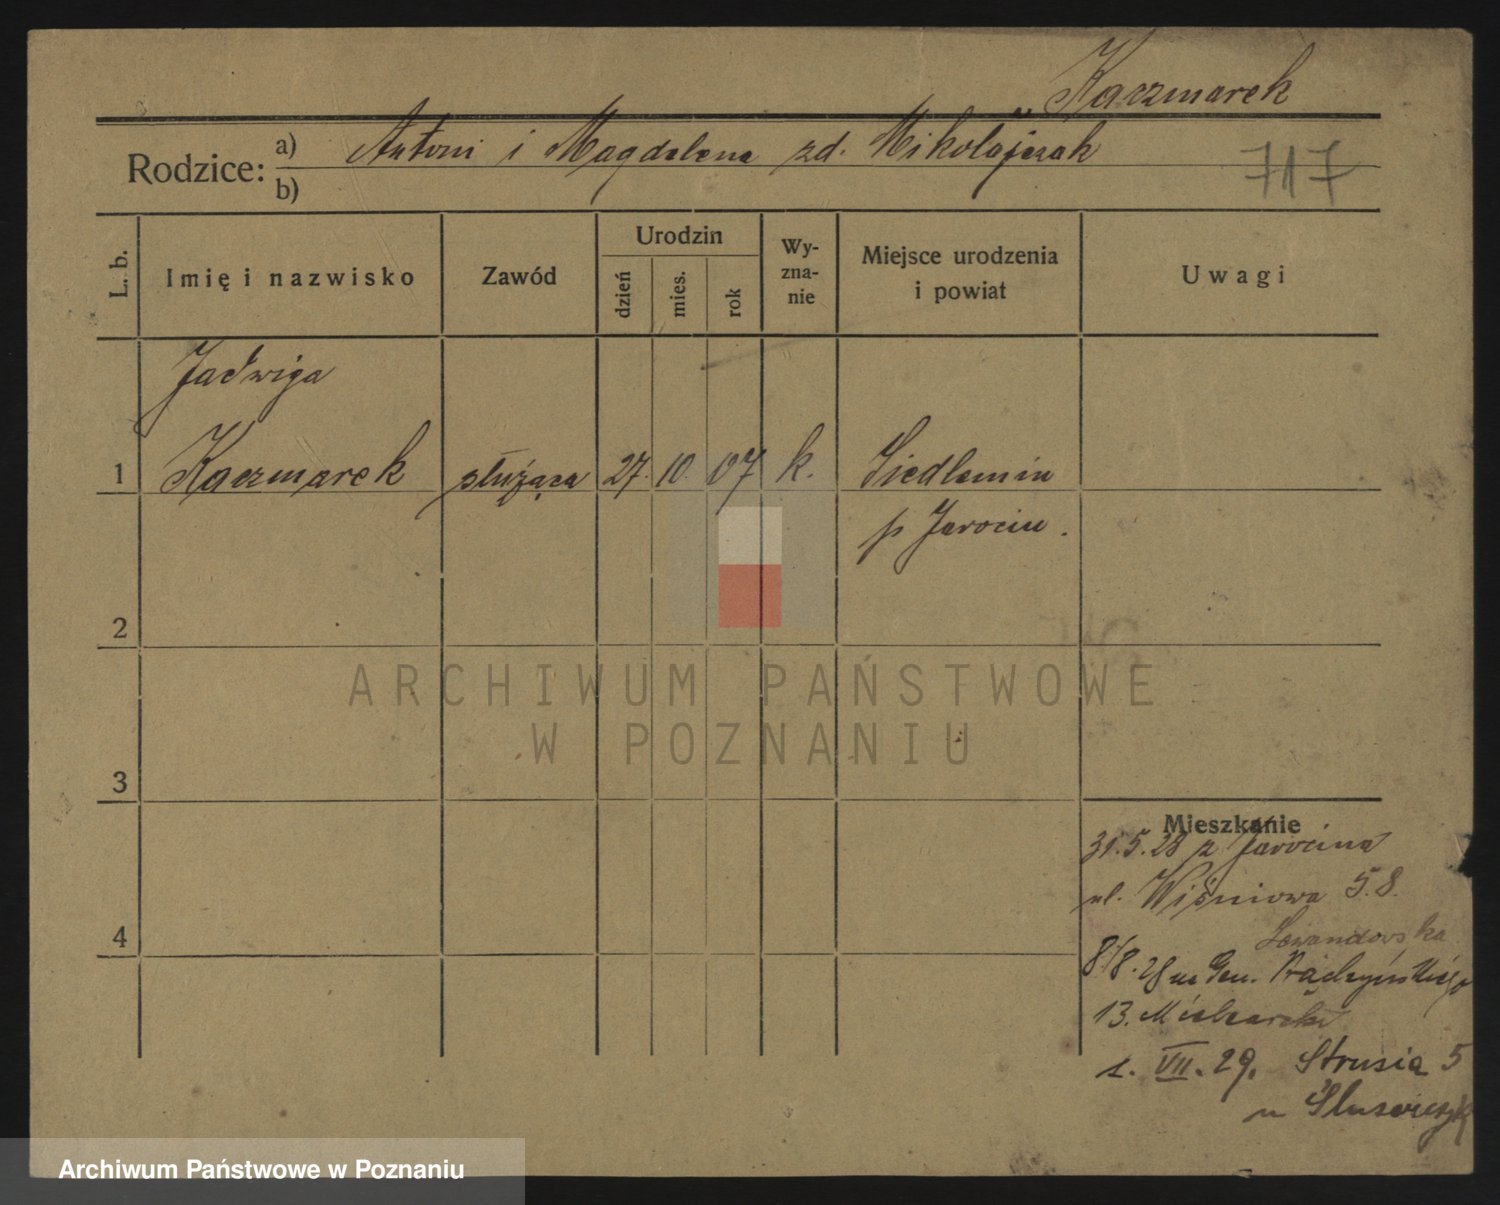 Kaczmarek
Rodzice: a) Antoni i Magdalena zd. Mikołajczak
b)
717
L. b.
Imię i nazwisko
Zawód
Urodzin
dzień
mies.
rok
Wy-
zna-
nie
Miejsce urodzenia
i powiat
Uwagi
Jadwiga
1 Kaczmarek służąca 27. 10. 07 k. Siedlemin
p Jarocin.
2
3
4
Mieszkanie
31.5.28 z Jarocina
ul. Wiśniowa 5.8.
8/8.28
13.
1. VII. 29. Strusia 5
u
ARCHIWUM PAŃSTWOWE
W POZNANIU
Archiwum Państwowe w Poznaniu